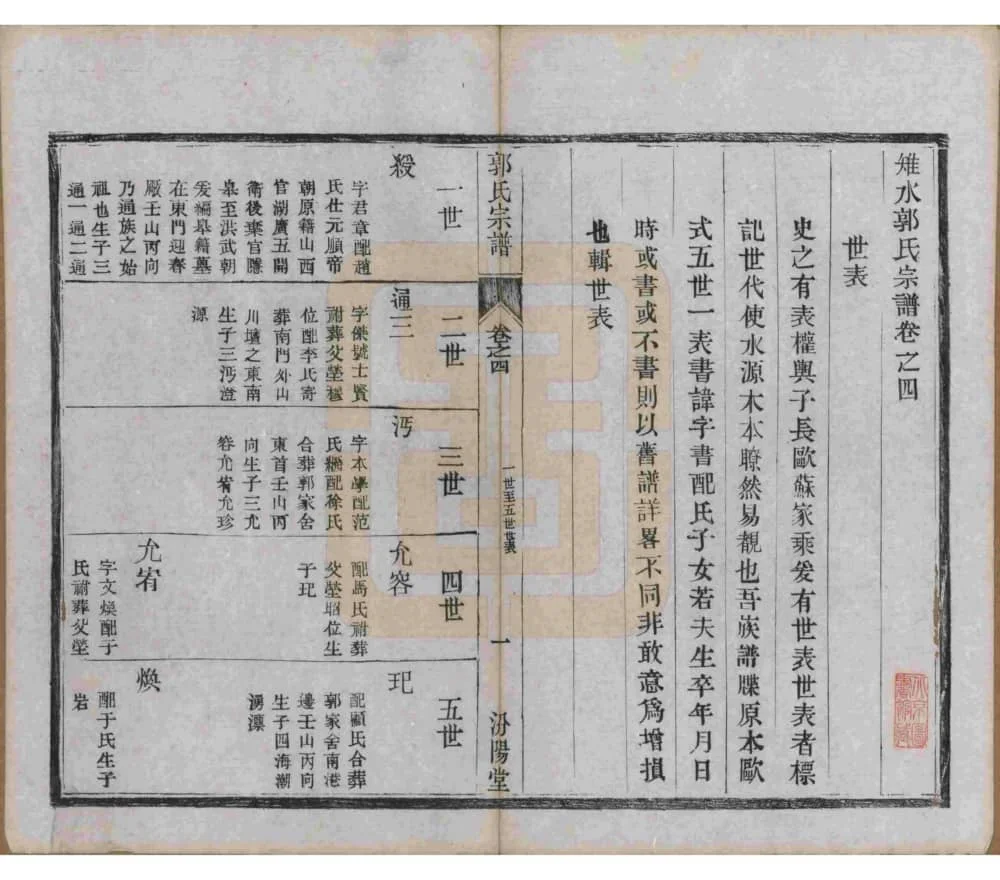 雉水郭氏宗譜卷之四
世表
史之有表權輿子長歐蘇家乘爰有世表世表者標
記世代使水源木本瞭然易覩也吾族譜牒原本歐
式五世一表書諱字書配氏子女若夫生卒年月日
時或書或不書則以舊譜詳畧不同非敢意爲增損
也輯世表
郭氏宗譜
卷之四
一世至五世世表
一
汾陽堂
一世
殺
字君章配趙
氏仕元順帝
朝原籍山西
官湖廣五開
衛後棄官隱
皋至洪武朝
爰編皋籍墓
在東門迎春
厰壬山丙向
乃通族之始
祖也生子三
通一通二通
二世
通三
字傑號士賢
祔葬父塋穆
位配李氏寄
葬南門外山
川壇之東南
生子三沔澄
源
三世
沔
字本學配范
氏繼配徐氏
合葬郭家舍
東首壬山丙
向生子三允
容允宥允珍
四世
允容
配馬氏祔葬
父塋昭位生
子玘
允宥
字文煥配于
氏祔葬父塋
五世
玘
配顧氏合葬
郭家舍南港
邊壬山丙向
生子四海潮
湧濂
煥
配于氏生子
岩